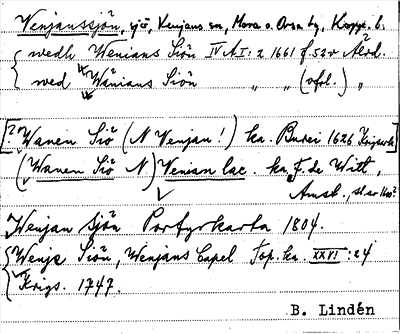 Venjanssjön, sjö, Venjans sn, Mora o. Orsa tg, Kopp. l.
wedh Wenians Siön IV A I: 2 1661 f. 52v Akrd.
wed Wänians Siön " " (ofvl.) "
[? Wanen Siö (N Wenjan!) ka. Burei 1626 Krigsark.]
(Wanen Siö N) Venian lac. ka. F. de Witt,
Amst., sl av 1600t
Wenjan Sjön Porfyrkarta 1804.
Wenje Siön, Wenjans Capel Top. ka. XXVI: 24
Krigs. 1747.
B. Lindén